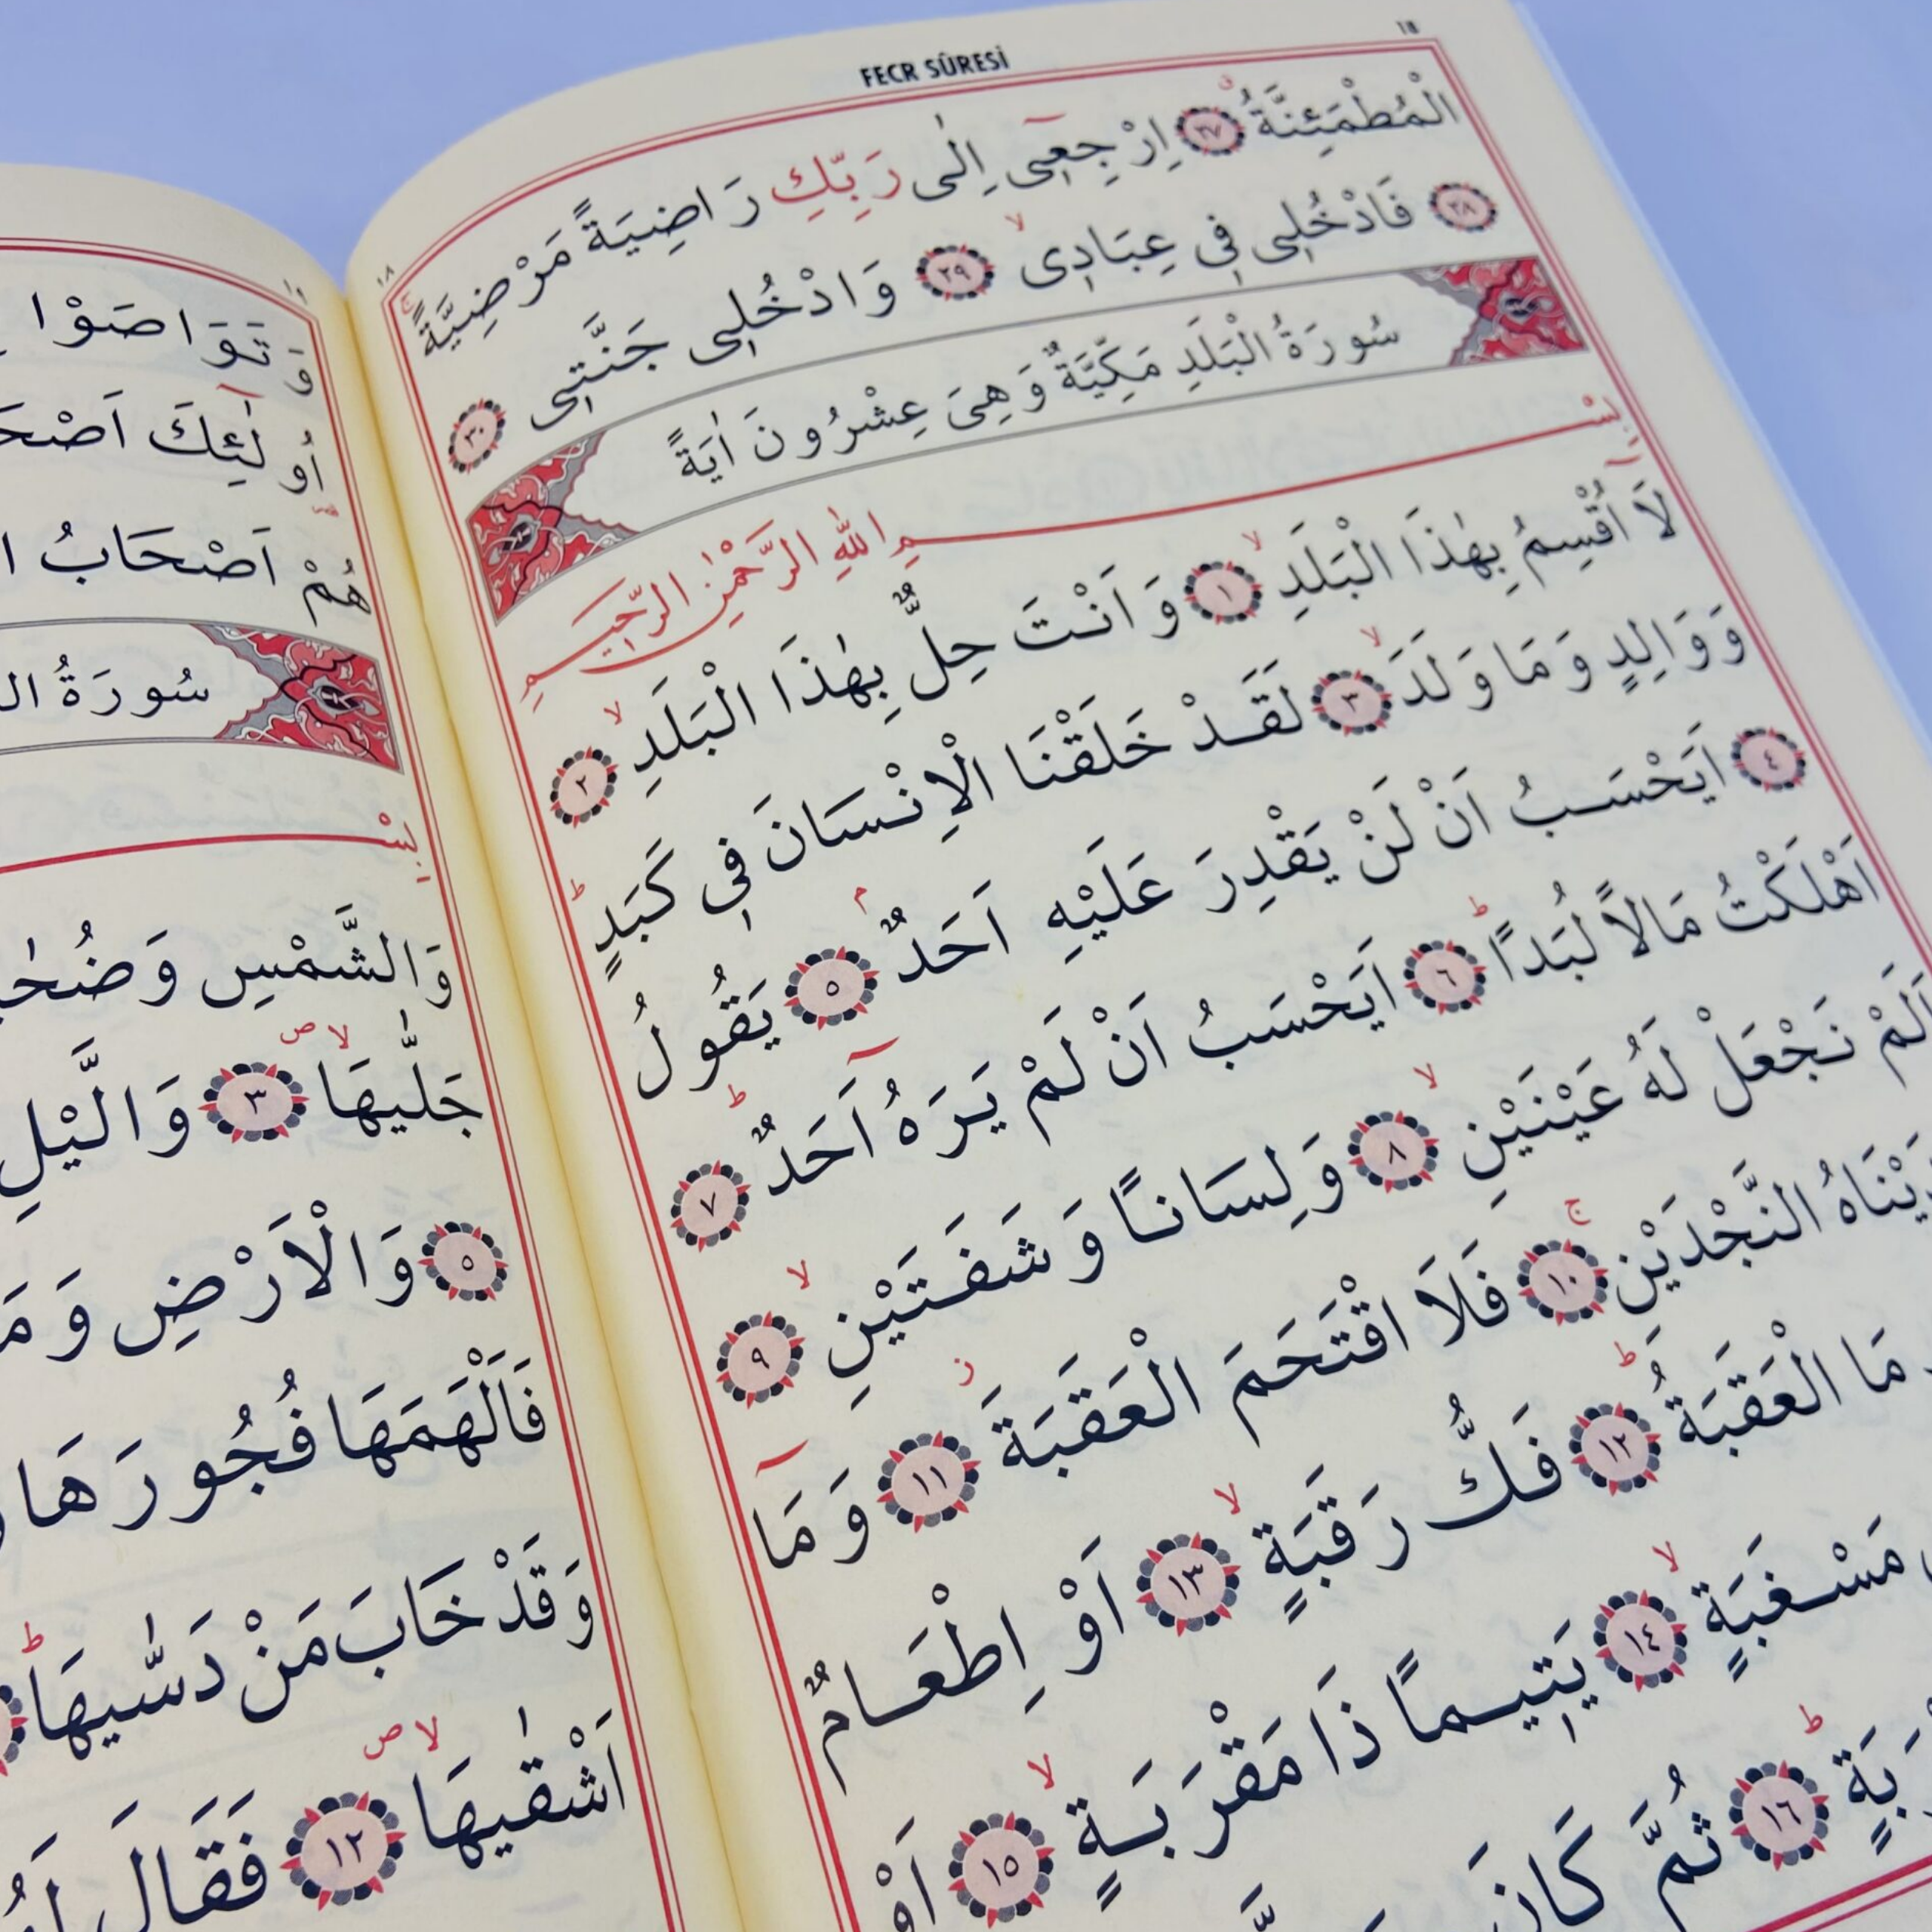 FECR SÛRESİ
١٨
الْمُطْمَئِنَّةُ ﴿٢٧﴾ اِرْجِعٖٓى اِلٰى رَبِّكِ رَاضِيَةً مَرْضِيَّةً
﴿٢٨﴾ فَادْخُلٖى فٖى عِبَادٖى ﴿٢٩﴾ وَادْخُلٖى جَنَّتٖى ﴿٣٠﴾
سُورَةُ الْبَلَدِ مَكِّيَّةٌ وَهِىَ عِشْرُونَ اٰيَةً
بِسْمِ اللّٰهِ الرَّحْمٰنِ الرَّحٖيمِ
لَٓا اُقْسِمُ بِهٰذَا الْبَلَدِ ﴿١﴾ وَاَنْتَ حِلٌّ بِهٰذَا الْبَلَدِ ﴿٢﴾
وَوَالِدٍ وَمَا وَلَدَ ﴿٣﴾ لَقَدْ خَلَقْنَا الْاِنْسَانَ فٖى كَبَدٍ
﴿٤﴾ اَيَحْسَبُ اَنْ لَنْ يَقْدِرَ عَلَيْهِ اَحَدٌ ﴿٥﴾ يَقُولُ
اَهْلَكْتُ مَالًا لُبَدًا ﴿٦﴾ اَيَحْسَبُ اَنْ لَمْ يَرَهُٓ اَحَدٌ ﴿٧﴾
اَلَمْ نَجْعَلْ لَهُ عَيْنَيْنِ ﴿٨﴾ وَلِسَانًا وَشَفَتَيْنِ ﴿٩﴾
النَّجْدَيْنِ ﴿١٠﴾ فَلَا اقْتَحَمَ الْعَقَبَةَ ﴿١١﴾ وَمَٓا
مَا الْعَقَبَةُ ﴿١٢﴾ فَكُّ رَقَبَةٍ ﴿١٣﴾ اَوْ اِطْعَامٌ
مَسْغَبَةٍ ﴿١٤﴾ يَتٖيمًا ذَا مَقْرَبَةٍ ﴿١٥﴾ اَوْ
﴿١٦﴾ ثُمَّ كَانَ
١٩
وَتَوَاصَوْا
اُولٰٓئِكَ
هُمْ اَصْحَابُ
سُورَةُ
بِسْ
وَالشَّمْسِ
جَلّٰيهَا ﴿٣﴾ وَالَّيْلِ
﴿٥﴾ وَالْاَرْضِ
فَاَلْهَمَهَا فُجُورَهَا
وَقَدْ خَابَ مَنْ دَسّٰيهَا
اَشْقٰيهَا ﴿١٢﴾ فَقَالَ